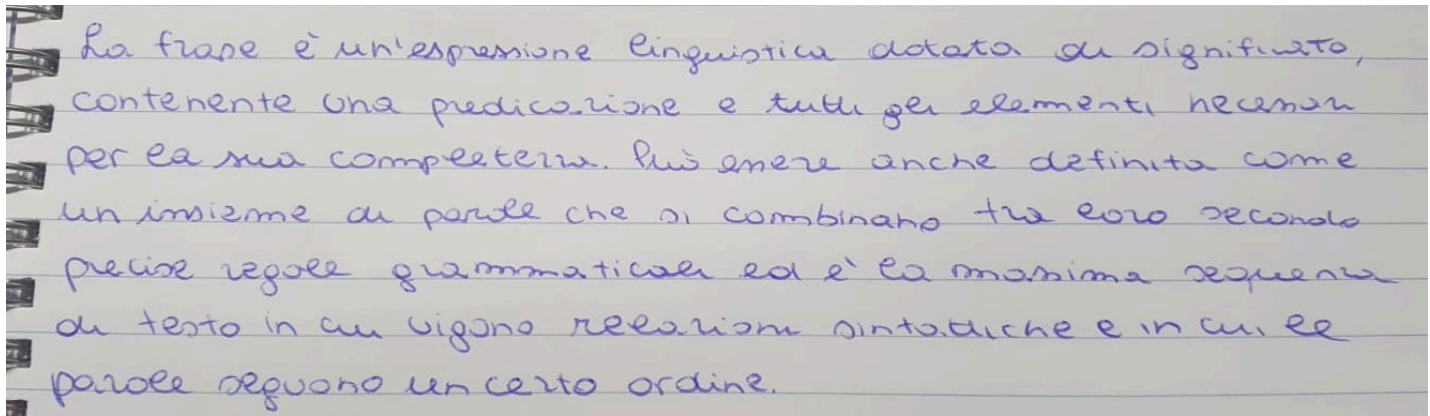 La frase è un'espressione linguistica dotata di significato,
contenente una predicazione e tutti gli elementi necessari
per la sua completezza. Può essere anche definita come
un insieme di parole che si combinano tra loro secondo
precise regole grammaticali ed è la massima sequenza
di testo in cui vigono relazioni sintattiche e in cui le
parole seguono un certo ordine.